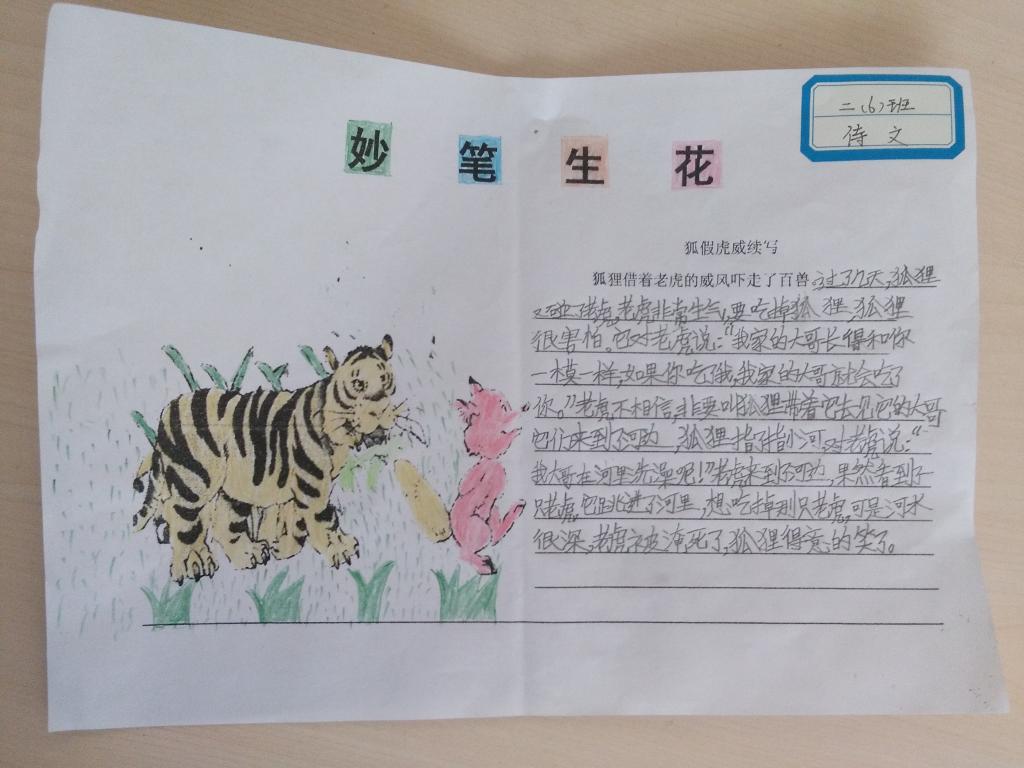 妙笔生花
二（6）班
诗文
狐假虎威续写
狐狸借着老虎的威风吓走了百兽。过了几天，狐狸
又碰了老虎，老虎非常生气，要吃掉狐狸，狐狸
很害怕。它对老虎说：“我家的大哥长得和你
一模一样，如果你吃了我，我家的大哥就会吃了
你。”老虎不相信，非要叫狐狸带着它去见它的大哥
它们来到了河边，狐狸指着小河对老虎说：“
我大哥在河里洗澡呢！”老虎来到了河边，果然看到了
只老虎，它跳进了河里，想吃掉那只老虎，可是河水
很深，老虎被淹死了，狐狸得意的笑了。